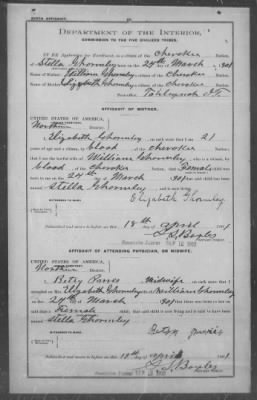 BIRTH AFFIDAVIT.
DEPARTMENT OF THE INTERIOR,
COMMISSION TO THE FIVE CIVILIZED TRIBES.
IN RE Application for Enrollment, as a citizen of the Cherokee Nation,
of Stella Ghormley, born on the 24th day of March, 1901
Name of Father: William Ghormley, a citizen of the Cherokee Nation.
Name of Mother: Elizabeth Ghormley, a citizen of the Cherokee Nation.
Tahlequah I.T.
AFFIDAVIT OF MOTHER.
UNITED STATES OF AMERICA,
Northern District.
I, Elizabeth Ghormley, on oath state that I am 21
years of age and a citizen by blood, of the Cherokee Nation;
that I am the lawful wife of William Ghormley, who is a citizen, by
blood, of the Cherokee Nation; that a Female child was
born to me on 24th day of March, 1901; that said child has been
named Stella Ghormley
Elizabeth Ghormley
Subscribed and sworn to before me this 18th day of April, 1901
NOTARY PUBLIC.
AFFIDAVIT OF ATTENDING PHYSICIAN, OR MIDWIFE.
UNITED STATES OF AMERICA,
Northern District.
I, Betsy, a Midwife, on oath state that I
attended on Mrs. Elizabeth Ghormley, wife of William Ghormley
on the 24th day of March, 1901; that there was born to her on said date a
Female child; that said child is now living and is said to have been
named Stella Ghormley
Subscribed and sworn to before me this 18th day of April, 1901
NOTARY PUBLIC.